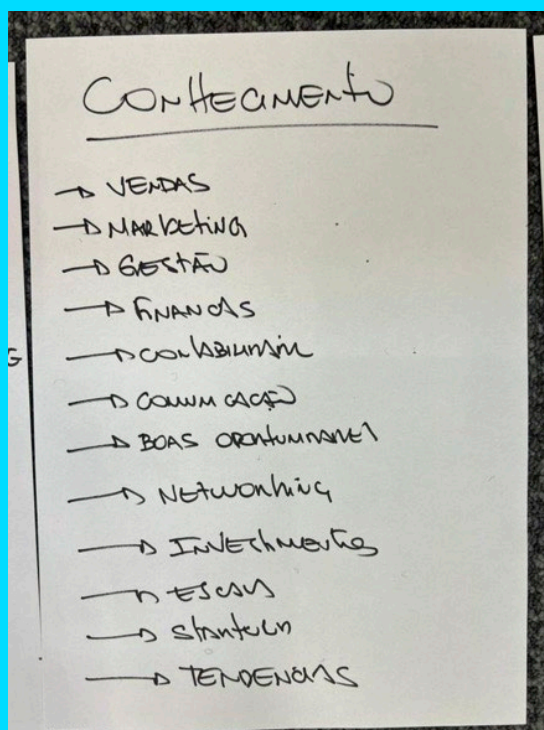 CONHECIMENTO
→ VENDAS
→ MARKETING
→ GESTÃO
→ FINANCAS
G
→ CONTABILIDADE
→ COMUNICAÇÃO
→ BOAS OPORTUNIDADES
→ NETWORKING
→ INVESTIMENTOS
→ ESCALA
→ STARTUP
→ TENDENCIAS